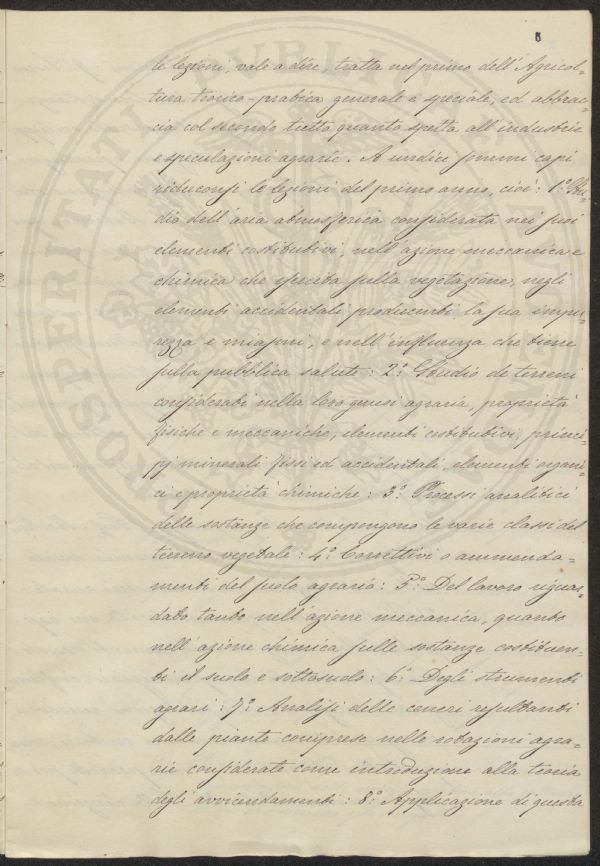 8
te lezioni, vale a dire, tratta nel primo dell'Agricol-
tura teorico-pratica generale e speciale, ed abbrac-
cia col secondo tutto quanto spetta all'industrie
e speculazioni agrarie. A undici sommi capi
riduconsi le lezioni del primo anno, cioè: 1.° Stu-
dio dell'aria atmosferica considerata nei suoi
elementi costitutivi, nell'azione meccanica e
chimica che esercita sulla vegetazione, negli
elementi accidentali producenti la sua impu-
rezza e miasmi, e nell'influenza che tiene
sulla pubblica salute: 2.° Studio de terreni
considerati nella loro genesi agraria, proprietà
fisiche e meccaniche, elementi costitutivi, princi-
pj minerali fissi ed accidentali, elementi organi-
ci e proprietà chimiche: 3.° Processi analitici
delle sostanze che compongono le varie classi del
terreno vegetale: 4.° Correttivi o ammenda-
menti del suolo agrario: 5.° Del lavoro riguar-
dato tanto nell'azione meccanica, quanto
nell'azione chimica sulle sostanze costituen-
ti il suolo e sottosuolo: 6.° Degli strumenti
agrari: 7.° Analisi delle ceneri resultanti
dalle piante comprese nelle rotazioni agra-
rie considerate come introduzione alla teoria
degli avvicendamenti: 8.° Applicazione di questa